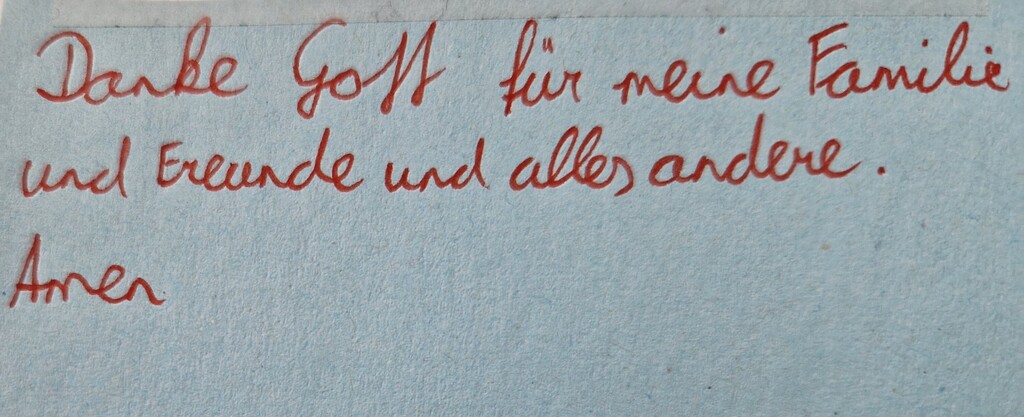 Danke Gott für meine Familie
und Freunde und alles andere.
Amen